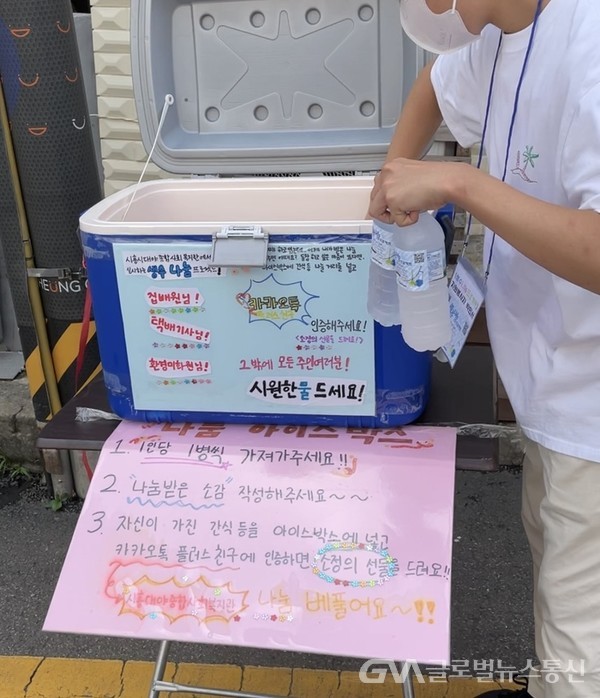 시흥시대야종합사회복지관에서
생수 나눔
집배원님!
택배기사님!
환경미화원님!
카카오톡
인증해주세요!
<소정의 선물 드려요!>
그 밖에 모든 주민여러분!
시원한물 드세요!
나눔 아이스박스
1. 1인당 1병씩 가져가주세요!!
2. "나눔받은 소감" 작성해주세요~~
3. 자신이 가진 간식 등을 아이스박스에 넣고
카카오톡 플러스친구에 인증하면 소정의 선물을 드려요!!
시흥대야종합사회복지관 나눔 베풀어요~!!
GNA 글로벌뉴스통신